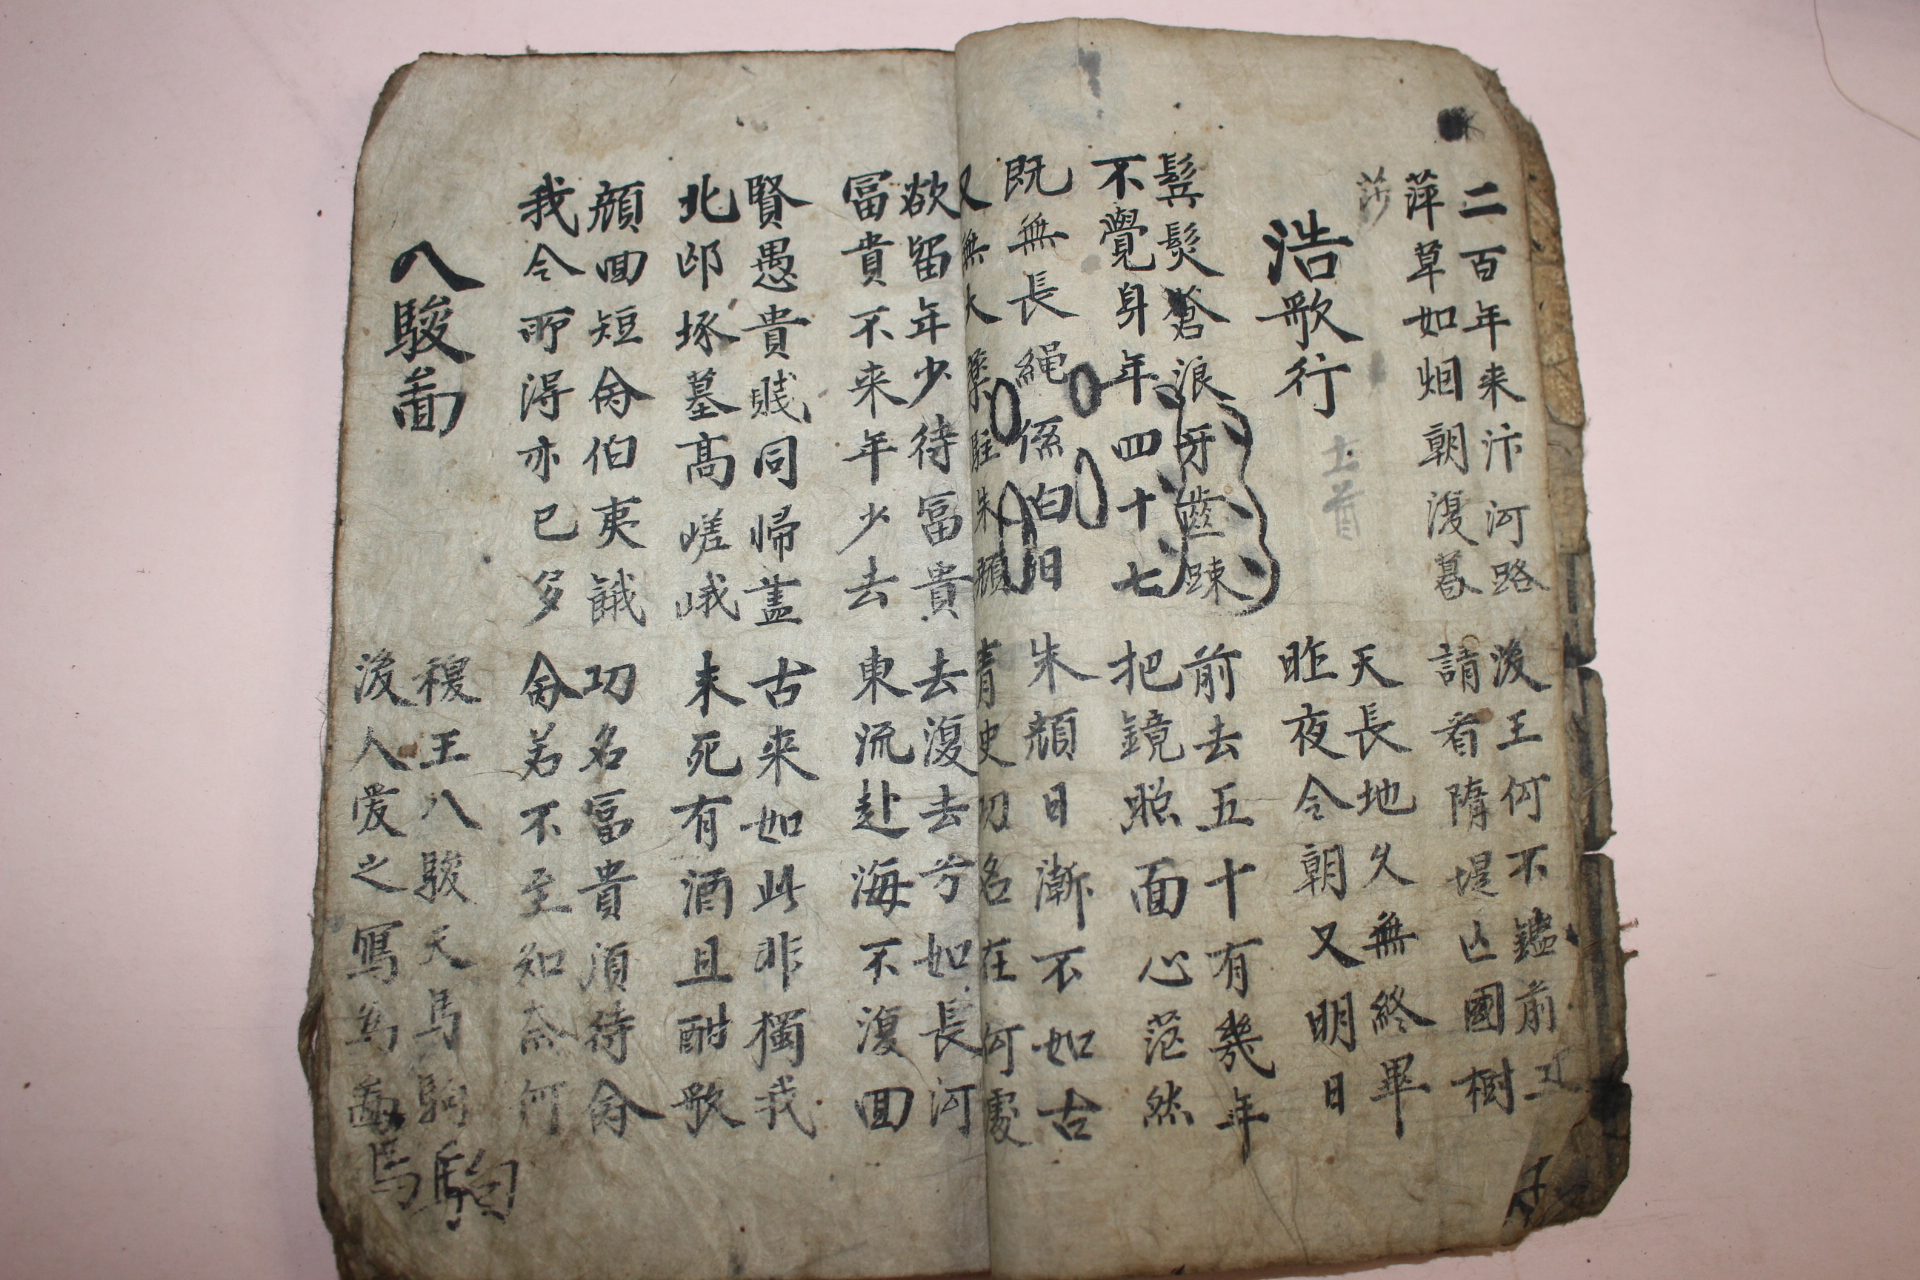 二百年来汴河路
後王何不鑑前王
萍草如烟朝復暮
請看隋堤亡國樹
浩歌行
天長地久無終畢
昨夜今朝又明日
鬂髮蒼浪牙齒踈
前去五十有幾年
不覺身年四十七
把鏡照面心茫然
既無長繩係白日
朱顔日漸不如古
又無大藥駐朱顔
青史功名在何處
欲留年少待富貴
去復去兮如長河
富貴不来年少去
東流赴海不復回
賢愚貴賤同帰盖
古来如此非獨我
北邙塚墓髙嵯峨
未死有酒且酣歌
顔回短命伯夷餓
功名富貴須待命
我今所淂亦已多
命若不至知奈何
八駿啚
穆王八駿天馬駒
後人爱之寫為啚
駒
馬